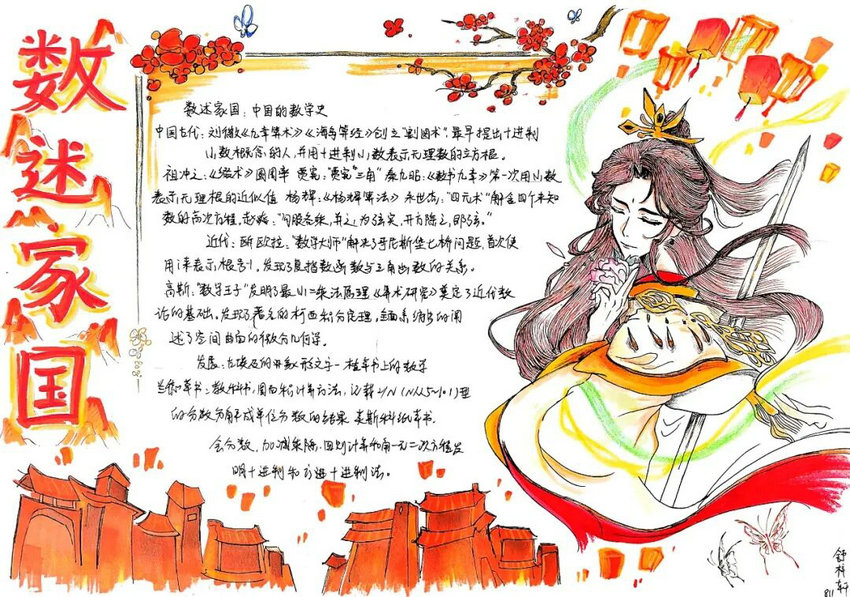 数述家国
数述家国：中国的数学史
中国古代：刘徽《九章算术》《海岛算经》创立“割圆术”最早提出十进制
小数概念的人，并用十进制小数表示无理数的立方根。
祖冲之：《缀术》圆周率 贾宪：“贾宪”三角”秦九韶：《数书九章》第一次用小数
表示无理根的近似值 杨辉：《杨辉算法》朱世杰：“四元术”解含四个未知
数的高次方程，赵爽：“勾股各乘，并之，为弦实，开方除之，即弦。”
近代：欧拉：“数学大师”解决了哥尼斯堡七桥问题，首次使
用i来表示根号-1，发现了复指数函数与三角函数的关系。
高斯：“数学王子”发明了最小二乘法原理《算术研究》奠定了近代数
论的基础，发现了著名的柯西积分定理，
述了空间曲面的微分几何学。
发展：古埃及的象形文字—植草书上的数学
草书：教科书，面积计算方法，记载2/N (N从5-101)型
的分数分解成单位分数的结果 莱斯科纸草书。
会分数，加减乘除，四则计算和解一元二次方程发
明十进制和六进十进制法。
舒梓轩
811